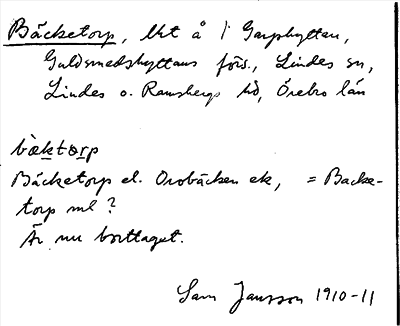 Bäcketorp, lht å 1 Garphyttan,
Guldsmedshyttans förs., Lindes sn,
Lindes o. Ramsbergs hd, Örebro län
bæ̀ktɷrp
Bäcketorp el. Orobäcken ek, = Backe-
torp ml ?
Är nu borttaget.
Sam Jansson 1910-11